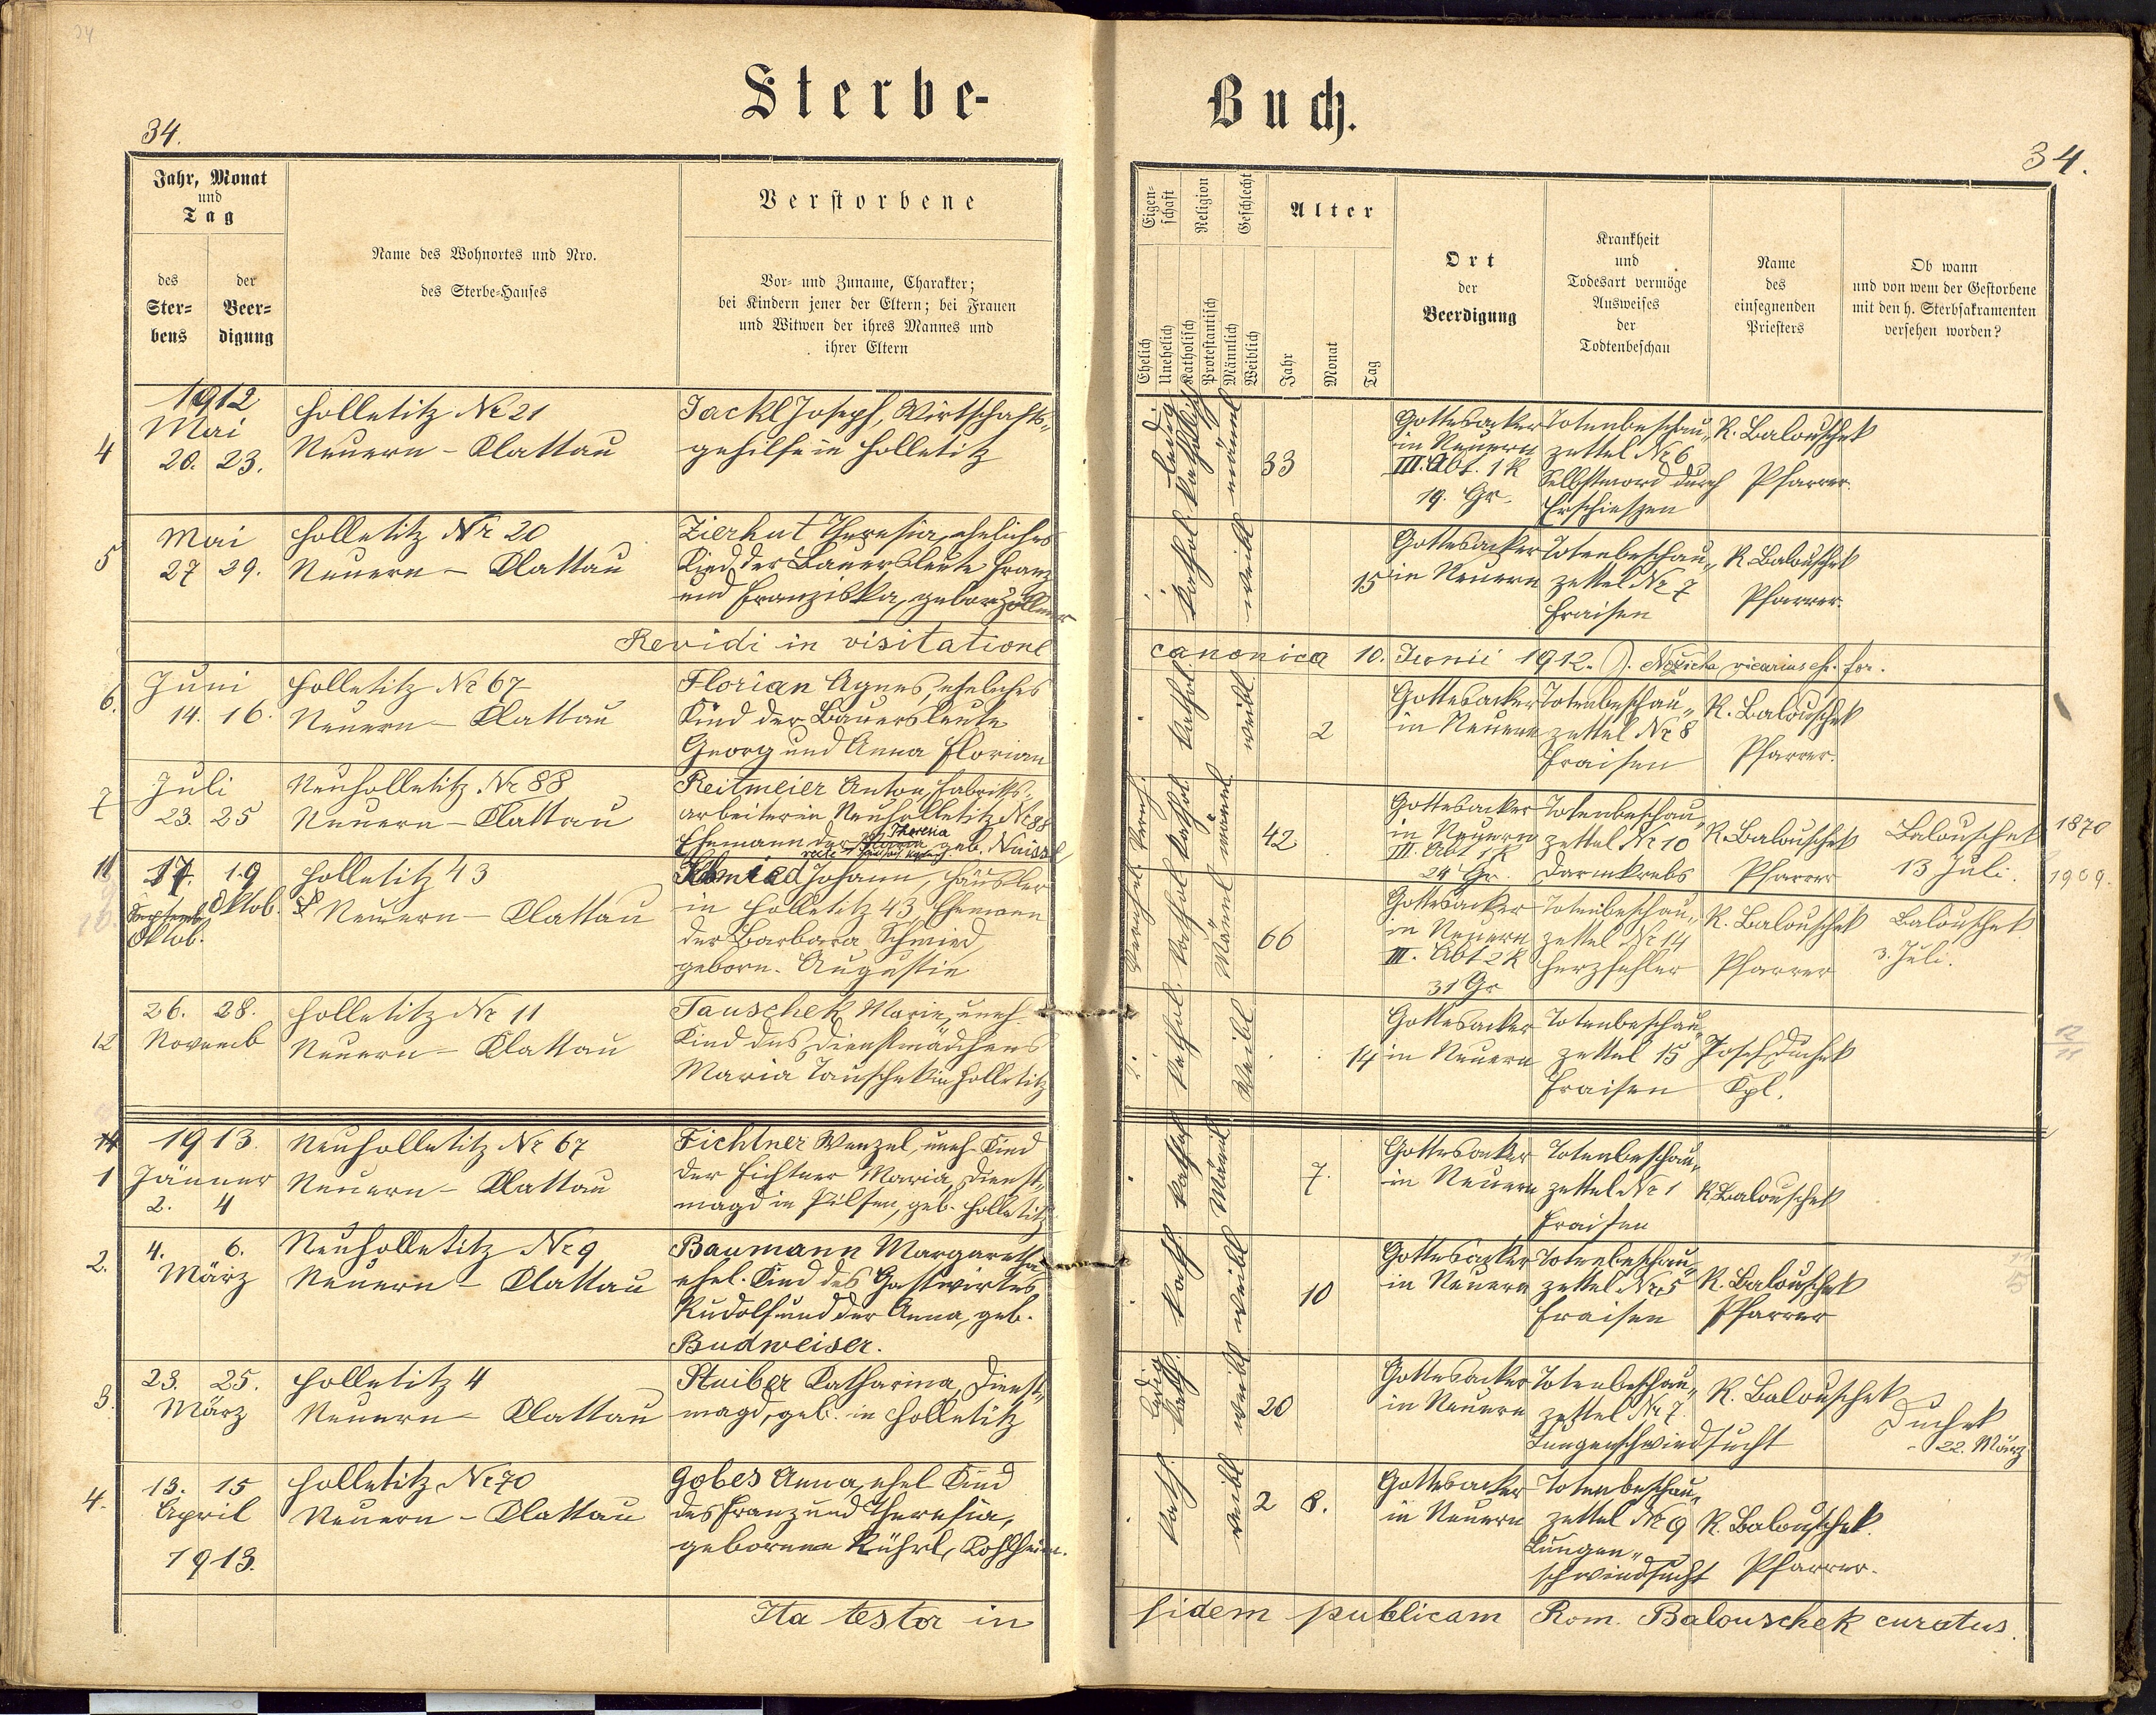 34
Sterbe-
Buch.
34.
34.
Jahr, Monat
und
Tag
des
Ster-
bens
der
Beer-
digung
Name des Wohnortes und Nro.
des Sterbe-Hauses
Verstorbene
Vor- und Zuname, Charakter;
bei Kindern jener der Eltern; bei Frauen
und Witwen der ihres Mannes und
ihrer Eltern
Eigen-
schaft
Religion
Geschlecht
Ehelich
Unehelich
Katholisch
Protestantisch
Männlich
Weiblich
Alter
Jahr
Monat
Tag
Ort
der
Beerdigung
Krankheit
und
Todesart vermöge
Ausweises
der
Todtenbeschau
Name
des
einsegnenden
Priesters
Ob wann
und von wem der Gestorbene
mit den h. Sterbsakramenten
versehen worden?
4
1912
Mai
20. 23.
Holletitz Nr 21
Neuern - Klattau
Jackl Joseph, Wirtschafts-
gehilfe in Holletitz
ledig
katholisch
männl
33
Gottesacker
in Neuern
III. Abt. 1 R
19. Gr.
Totenbeschau-
zettel Nr 6
Selbstmord durch
Erschieszen
R. Balouschek
Pfarrer.
5
Mai
27 29.
Holletitz Nr 20
Neuern - Klattau
Zierhut Theresia, eheliches
Kind der Bauersleute Franz
und Franziska, gebor. Zöllner
kathol.
weibl
15
Gottesacker
in Neuern
Totenbeschau-
zettel Nr 7
Fraisen
R. Balouschek
Pfarrer.
Revidi in visitatione
canonica 10. Junii 1912. vicarius for.
6.
Juni
14. 16.
Holletitz Nr 67
Neuern - Klattau
Florian Agnes, eheliches
Kind der Bauersleute
Georg und Anna Florian
kathol.
weibl
2
Gottesacker
in Neuern
Totenbeschau-
zettel Nr 8
Fraisen
R. Balouschek
Pfarrer.
7
Juli
23. 25
Neuholletitz Nr 88
Neuern - Klattau
Reitmeier Anton, Fabriks-
arbeiter in Neuholletitz Nr 88
Theresia
Ehemann der geb.
kathol.
männl
42
Gottesacker
in Neuern
III. Abt 1 R
24 Gr.
Totenbeschau-
zettel Nr 10
Darmkrebs
R. Balouschek
Pfarrer
Balouschek
13 Juli.
1870
1909.
11
17. 19
Oktob.
Oktob.
Holletitz 43
Neuern - Klattau
Johann, Häusler
in Holletitz 43, Ehemann
der Barbara Schmied,
geborn. Augustin
verheirat.
kathol
Männl
66
Gottesacker
in Neuern
III. Abt 2 R
31 Gr
Totenbeschau-
zettel Nr 14
Herzfehler
R. Balouschek
Pfarrer
Balouschek
3. Juli.
12
26. 28.
Novemb
Holletitz Nr 11
Neuern - Klattau
Tauschek Marie, uneh.
Kind des Dienstmädchens
Maria Tauschek in Holletitz
kathol.
Weibl
14
Gottesacker
in Neuern
Totenbeschau-
zettel 15
Fraisen
Josef Duchek
Kpl.
12
11
1
1913.
Jänner
2. 4
Neuholletitz Nr 67
Neuern - Klattau
Fichtner Wenzel, uneh. Kind
der Fichtner Maria, Dienst-
magd in Pilsen, geb. Holletitz
Männl
7.
Gottesacker
in Neuern
Totenbeschau-
zettel Nr 1
Fraisen
R Balouschek
2.
4. 6.
März
Neuholletitz Nr 9
Neuern - Klattau
Baumann Margaretha
ehel. Kind des Gastwirtes
Rudolf und der Anna, geb.
Budweiser.
kath.
weibl
10
Gottesacker
in Neuern
Totenbeschau-
zettel Nr 5
Fraisen
R. Balouschek
Pfarrer
3.
23. 25.
März
Holletitz 4
Neuern - Klattau
Stuiber Katharina, Dienst-
magd, geb. in Holletitz
ledig
kath.
weibl
20
Gottesacker
in Neuern
Totenbeschau-
zettel Nr 7
Lungenschwindsucht
R. Balouschek
Duchek
22. März
4.
13. 15
April
1913.
Holletitz Nr 70
Neuern - Klattau
Gobes Anna, ehel Kind
des Franz und Theresia,
geborenen Kührl, Kohlheim.
kath.
weibl
2 8.
Gottesacker
in Neuern
Totenbeschau-
zettel Nr 9
Lungen-
schwindsucht
R. Balouschek.
Pfarrer.
Ita testor in
fidem publicam Rom. Balouschek curatus.